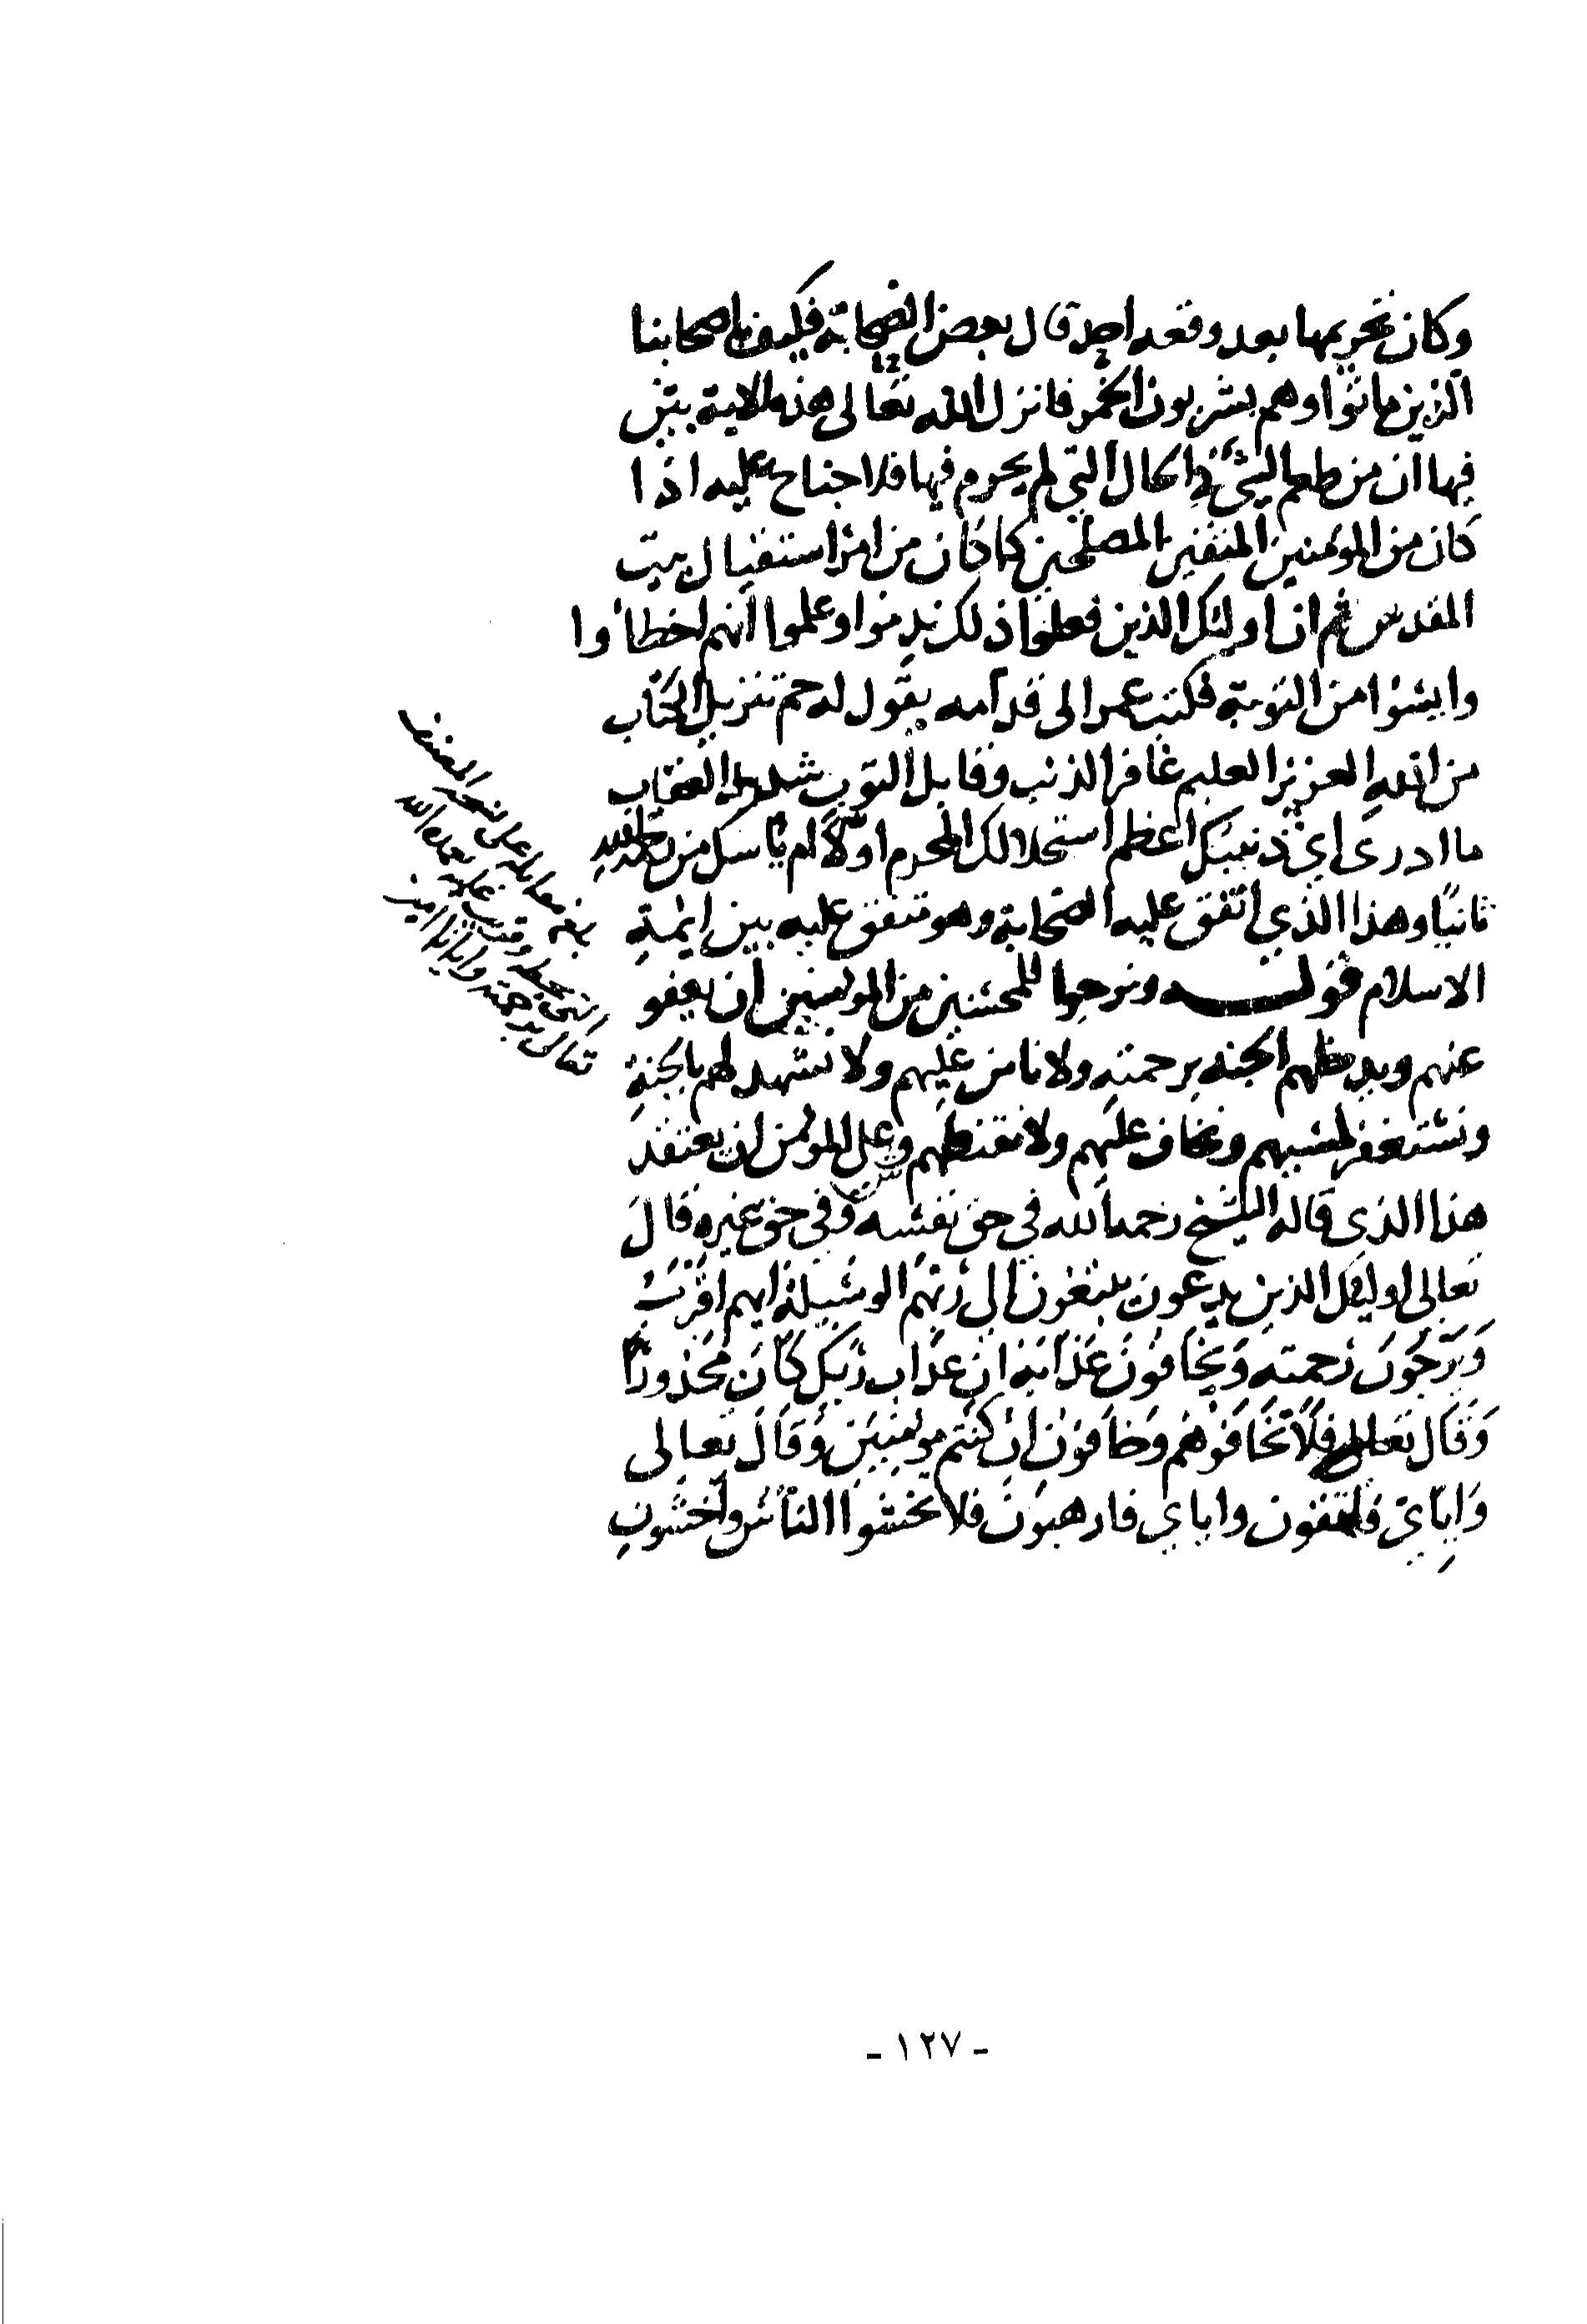 وكان تحريمها بعد وقعة احد قال بعض الصحابة فكيف باصحابنا
الذين ماتوا وهم يشربون الخمر فانزل الله تعالى هذه الاية بيّن
فيها ان من طعم الشئ في الحال التي لم يحرم فيها فلا جناح عليه اذا
كان من المؤمنين المتقين المصلحين كما كان من امر استقبال بيت
المقدس ثم ان اوليك الذين فعلوا ذلك ندموا وعلموا انهم اخطاوا
وايسوا من التوبة فكتب عمر الى قدامه يقول له حم تنزيل الكتاب
من الله العزيز العليم غافر الذنب وقابل التوب شديد العقاب
ما ادرى اي ذنبيك اعظم استحلالك المحرم اولًا ام ياسك من رحمة الله
ثانيًا وهذا الذي اتفق عليه الصحابة وهو متفق عليه بين ايمة
الاسلام قوله ونرجوا للمحسنين من المومنين ان يعفو
عنهم ويدخلهم الجنة برحمته ولا نامن عليهم ولا نشهد لهم بالجنة
ونستغفر لمسيهم ونخاف عليهم ولا نقنطهم وعلى المومن ان يعتقد
هذا الذي قاله الشيخ رحمه الله في حق نفسه وفي حق غيره قال
تعالى اوليك الذين يدعون يبتغون الي ربهم الوسيلة ايهم اقرب
ويرجون رحمته ويخافون عذابه ان عذاب ربك كان محذورًا
وقال تعالى فلا تخافوهم وخافون ان كنتم مومنين وقال تعالى
واياي فاتقون واياي فارهبون فلا تخشوا الناس واخشون
بلغ مقابلة على نسخة المصنف
التي بخطه
تعالى برحمته وايانا امين
- ١٢٧ -